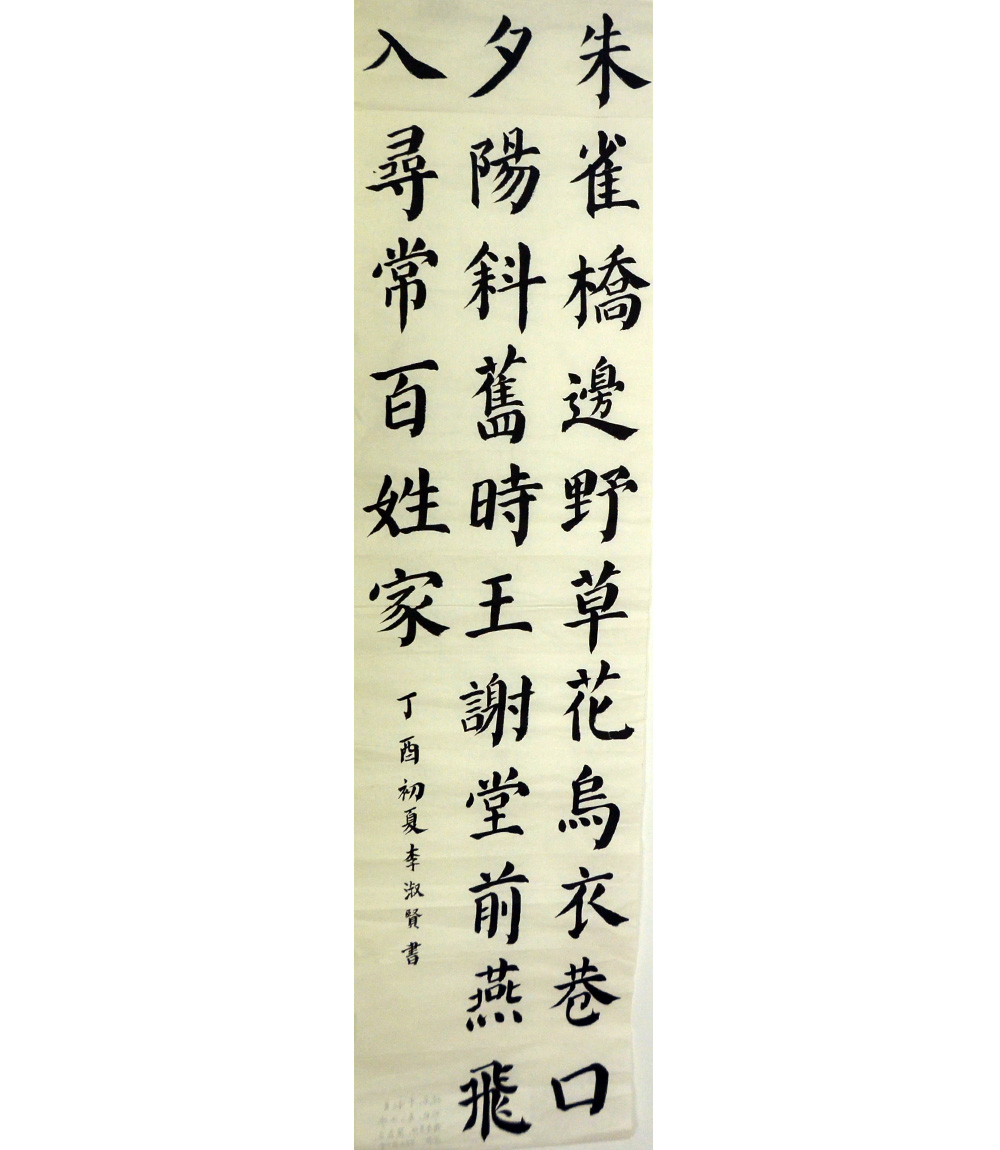 朱雀橋邊野草花烏衣巷口
夕陽斜舊時王謝堂前燕飛
入尋常百姓家
丁酉初夏李淑賢書